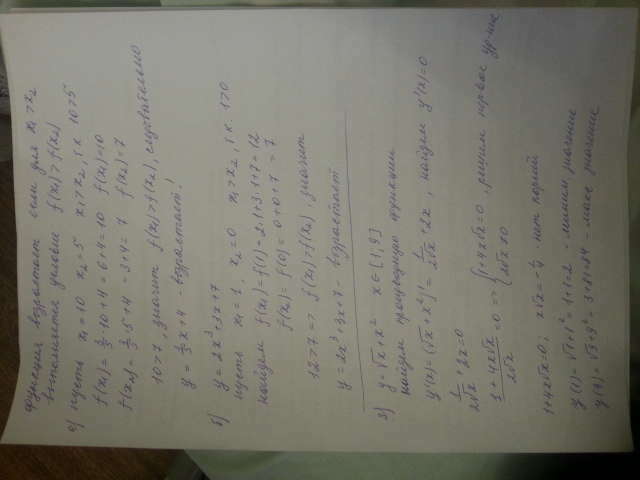 функция возрастает если для x₁>x₂
выполняется условие f(x₁)>f(x₂)
а) пусть x₁=10 x₂=5 x₁>x₂, т.к 10>5
f(x₁)=3/5·10+4=6+4=10 f(x₁)=10
f(x₂)=3/5·5+4=3+4=7 f(x₂)=7
10>7, значит f(x₁)>f(x₂), следовательно
y=3/5x+4 - возрастает!
б) y=2x³+3x+7
пусть x₁=1, x₂=0 x₁>x₂, т.к 1>0
найдем f(x₁)=f(1)=2·1+3·1+7=12
f(x₂)=f(0)=0+0+7=7
12>7 => f(x₁)>f(x₂), значит
y=2x³+3x+7 - возрастает
3) y=√x+x² x∈[1,9]
найдем производную функции
y'(x)=(√x+x²)'=1/(2√x)+2x, найдем y'(x)=0
1/(2√x)+2x=0
(1+4x√x)/(2√x)=0 => {1+4x√x=0, решим первое ур-ние
2√x≠0
1+4x√x=0; x√x=-1/4 - нет корней
y(1)=√1+1²=1+1=2 - миним значение
y(9)=√9+9²=3+81=84 - макс значение